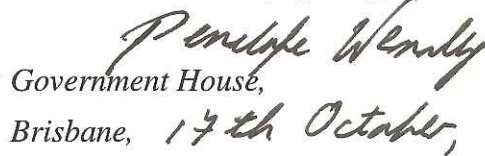 Penelope Wensley
Government House,
Brisbane, 17th October,